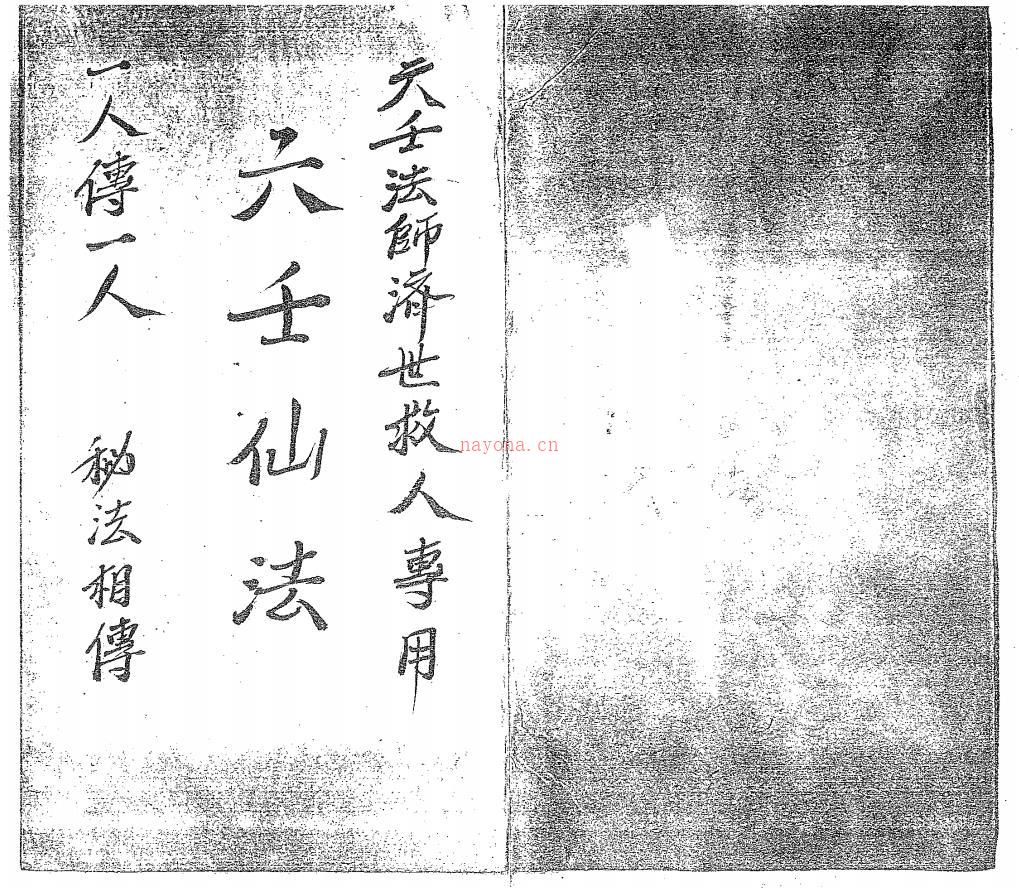 六壬法師濟世救人專用
六壬仙法
一人傳一人 秘法相傳
nayona.cn